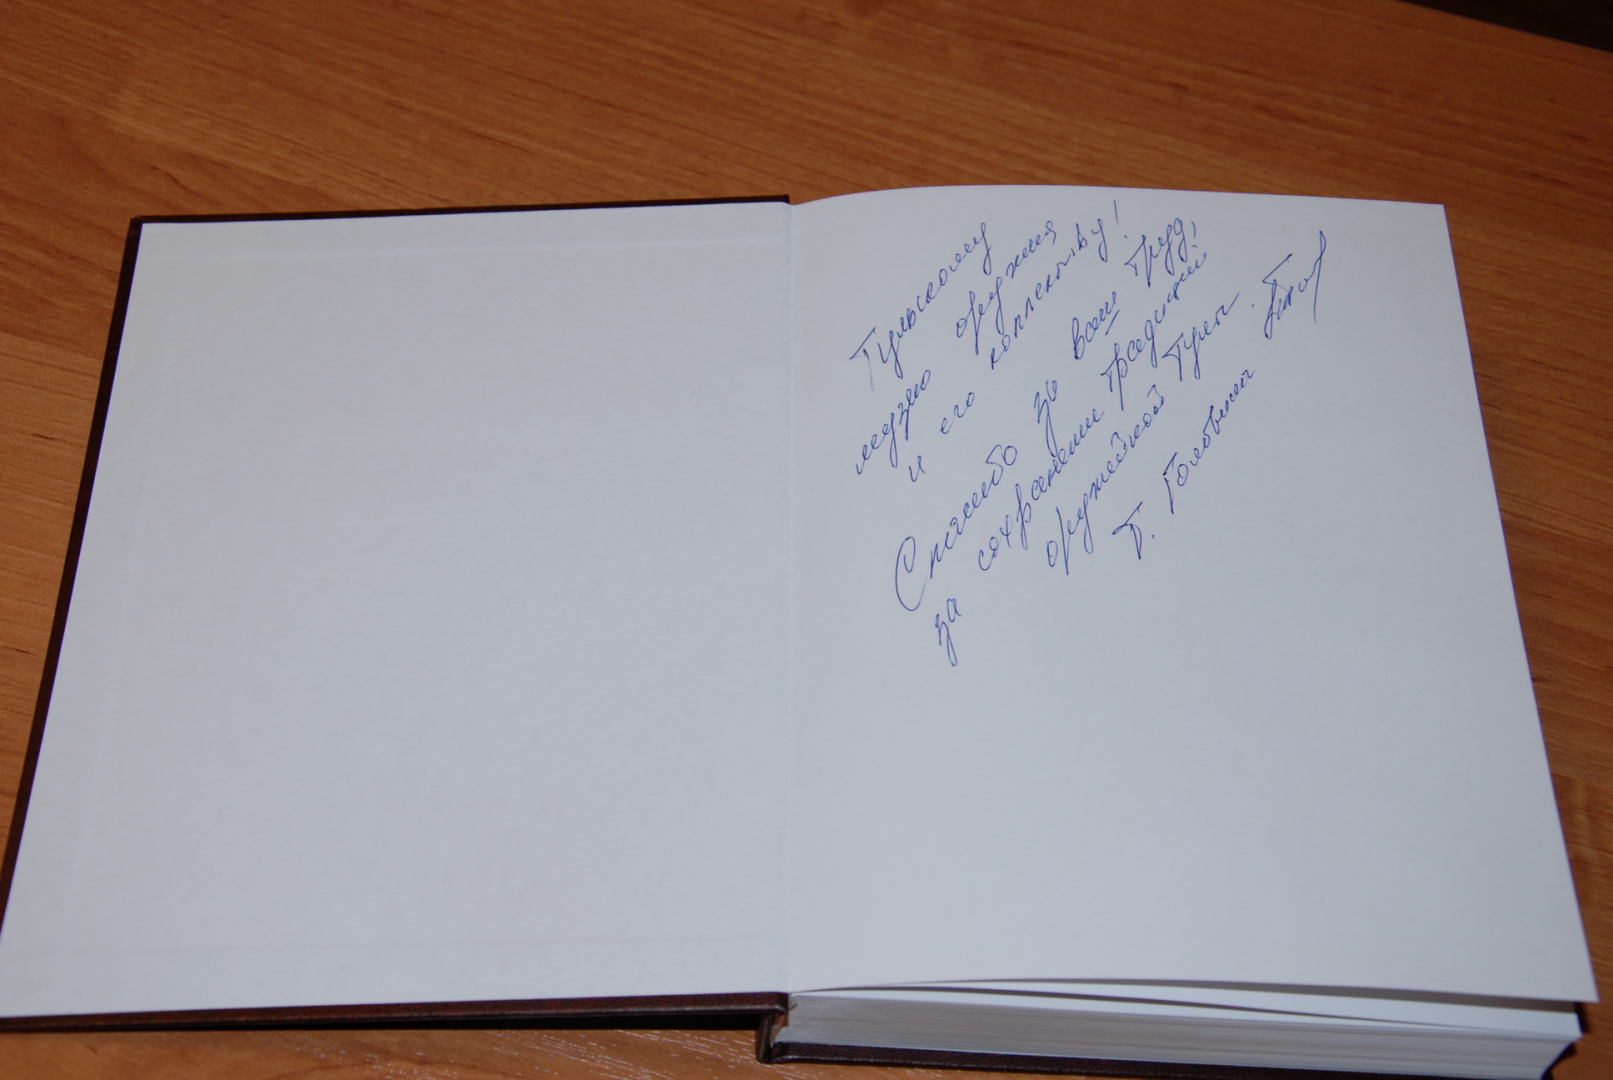 Тульскому
музею оружия
и его коллективу!
Спасибо за ваш труд,
за сохранение традиций
оружейной Тулы.
Т. Головина